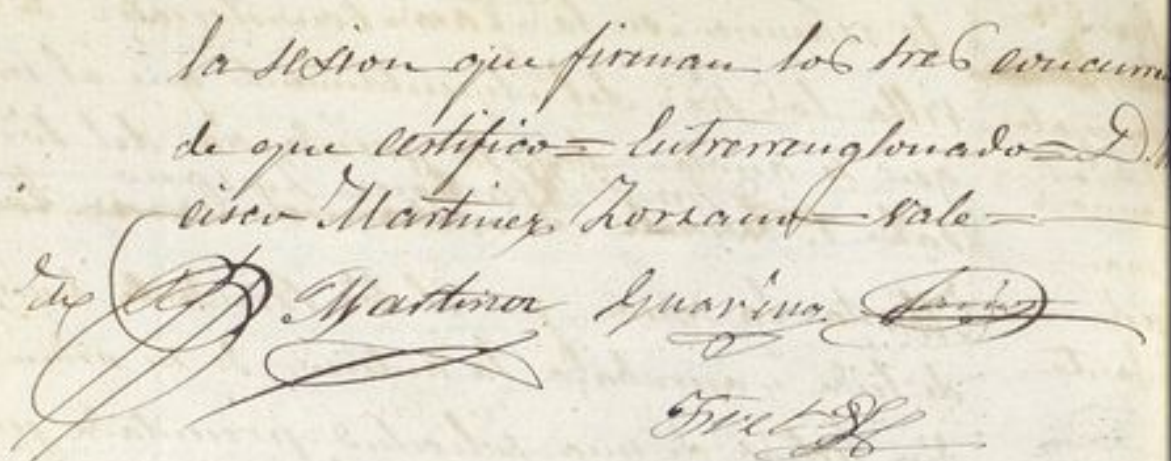 la sesion que firman los tres concurr
de que certifico = Entrerrenglonado = D.
cisco Martinez Zorzano = vale =
Martinez Guarina